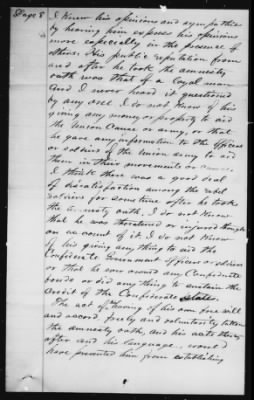 Page 8
I knew his opinions and sympathies
by hearing him express his opinions
more especially in the presence of
others. His public reputation from
and after he took the amnesty
oath was that of a loyal man
And I never heard it questioned
by any one. I do not know of his
giving any money or property to aid
the Union Cause or army, or that
he gave any information to the officers
or soldiers of the Union army to aid
them in their movements or
I think there was a good deal
of dissatisfaction among the rebel
soldiers for some time after he took
the amnesty oath, I do not know
that he was threatened or injured though
on account of it. I do not know
of his giving any thing to aid the
Confederate Government officers or soldiers
or that he ever owned any Confederate
bonds or did any thing to sustain the
Credit of the Confederate States.
The act of having of his own free will
and accord, freely and voluntarily taken
the amnesty oath, and his acts there
after and his language would
have prevented him from establishing